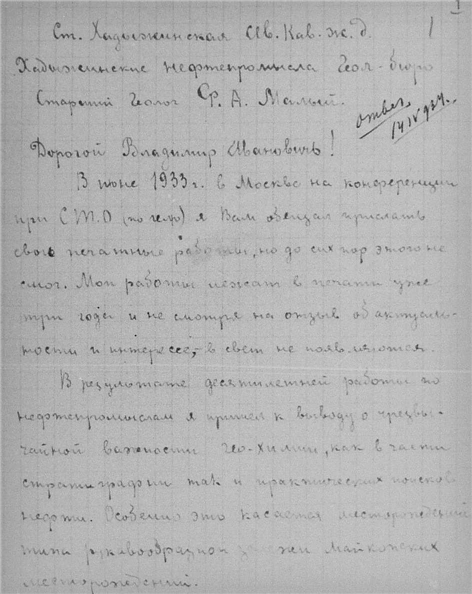 1
Ст. Хадыжинская Св. Кав. ж. д.
1
Хадыжинские нефтепромысла Геол-бюро
Старший Геолог Ф. А. Малый.
ответ.
14 IV 934.
Дорогой Владимир Иванович!
В июне 1933 г. в Москве на конференции
при С.Т.О (по гелю) я Вам обещал прислать
свои печатные работы, но до сих пор этого не
смог. Мои работы лежат в печати уже
три года и не смотря на отзыв об актуаль-
ности и интересе, в свет не появляются.
В результате десятилетней работы по
нефтепромыслам я пришел к выводу о чрезвы-
чайной важности Гео-химии, как в части
стратиграфии так и практических поисков
нефти. Особенно это касается месторождений
типа рукавообразной залежи Майкопских
месторождений.